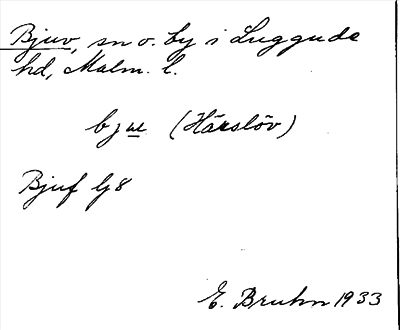 Bjuv, sn o. by i Luggude
hd, Malm. l.
bjue (Härslöv)
Bjuf Lj8
E. Bruhn 1933